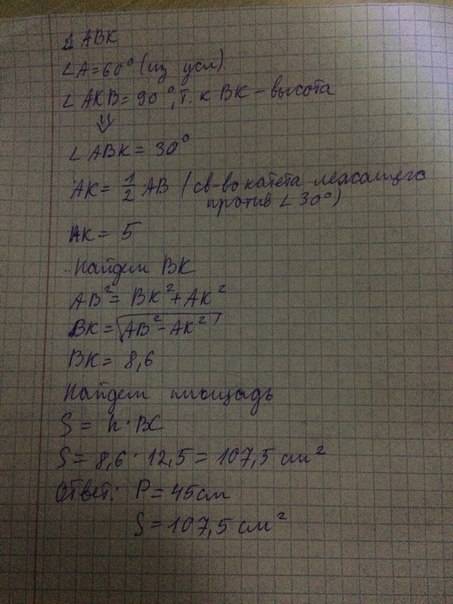 Δ ABK
∠A=60° (из усл)
∠AKB=90°, т.к BK - высота
⇓
∠ABK = 30°
AK = 1/2 AB (св-во катета лежащего
против ∠30°)
AK = 5
Найдем BK
AB² = BK² + AK²
BK = √AB² - AK²
BK = 8,6
Найдем площадь
S = h · BC
S = 8,6 · 12,5 = 107,5 см²
Ответ: P = 45см
S = 107,5 см²